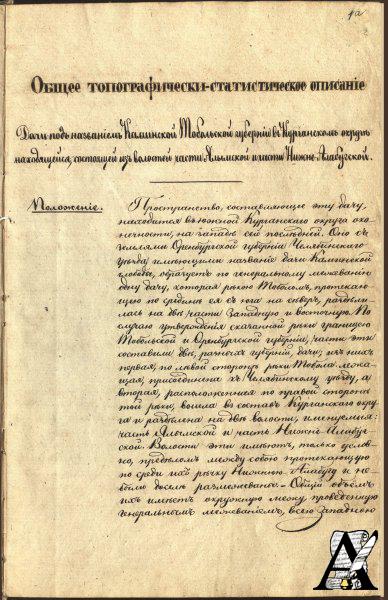 Общее топографически-статистическое описаніе
Дачи подъ названіемъ Каминской Тобольской губерніи въ Курганскомъ округѣ
находящейся, состоящей изъ волостей части Яльмской и части Нижне-Алабугской.
Положеніе.
Пространство, составляющее эту дачу,
находится въ южной Курганскаго округа око-
нечности, на западъ сей послѣдней. Оно съ
землями Оренбургской губерніи Челябинскаго
уѣзда, имѣющими названіе дачи Каминской
слободы, образуетъ по генеральному межеванію
одну дачу, которая рѣкою Тоболомъ, протекаю-
щею по срединѣ ея съ юга на сѣверъ, раздѣли-
лась на двѣ части западную и восточную. По
случаю утвержденія сказанной рѣки границею
Тобольской и Оренбургской губерніи, части эти
составили двѣ, разныхъ губерній, дачи; изъ нихъ
первая, по лѣвой сторонѣ рѣки Тобола лежа-
щая, присоединена къ Челябинскому уѣзду, а
вторая, расположенная по правой сторонѣ
той рѣки, вошла въ составъ Курганскаго окру-
га и раздѣлена на двѣ волости, именуемыя:
часть Яльмской и часть Нижне Алабуг-
ской Волости эти имѣютъ, только услов-
но, предѣломъ между собою протекающую
по среди ихъ рѣчку Нижнюю Алабугу и не
были доселѣ размежеваны. - Общій объемъ
ихъ имѣетъ окружную межу проведенную
генеральнымъ межеваніемъ, всею западною